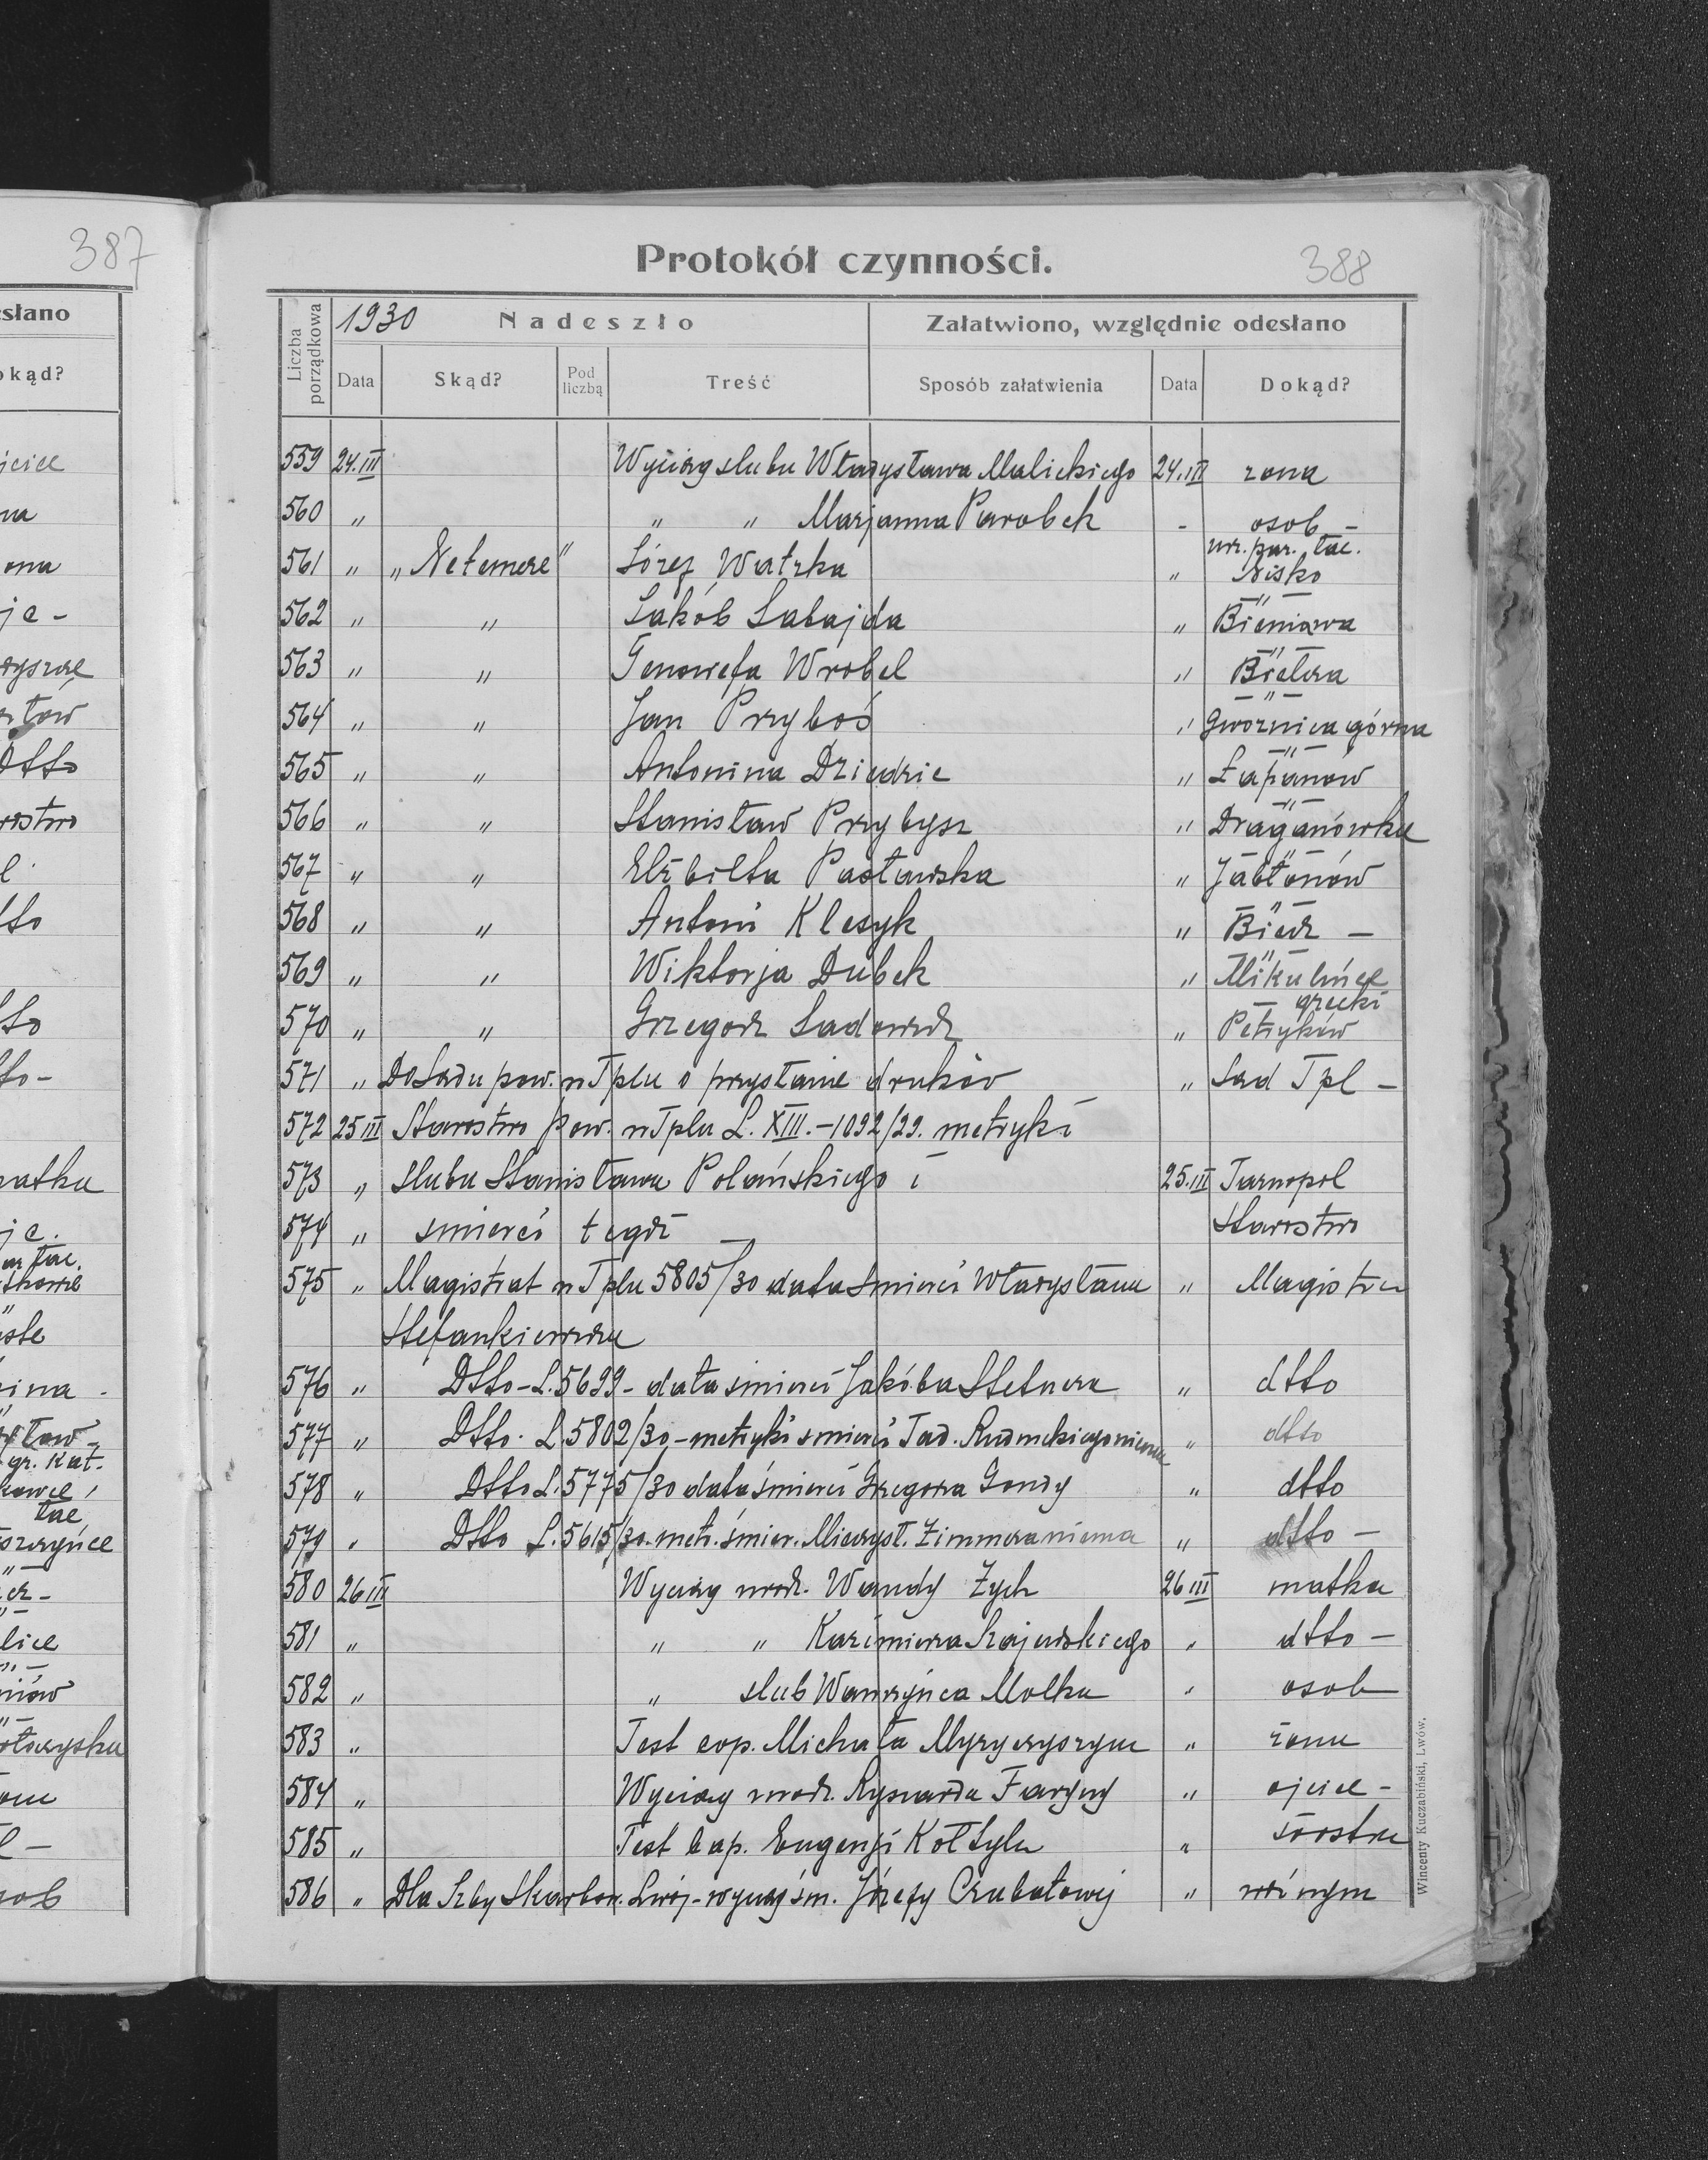 387
388
Protokół czynności.
Liczba porządkowa
1930 Nadeszło
Załatwiono, względnie odesłano
Data Skąd? Pod liczbą Treść Sposób załatwienia Data Dokąd?
559 24.III Wyciąg slubu Władysława Malickiego 24.III zona
560 „ „ „ Marjanna Parobek - osob -
561 „ „Ne temere" Józef Watzka „ urz. par. łac. Nisko
562 „ „ Jakób Sabajda „ —„— Bieniawa
563 „ „ Genowefa Wrobel „ —„— Bielcza
564 „ „ Jan Przyboś „ —„— Gwoznica górna
565 „ „ Antonina Dziedzic „ —„— Łapanów
566 „ „ Stanisław Przybysz „ —„— Draganówka
567 „ „ Elżbieta Pasławska „ —„— Jabłonów
568 „ „ Antoni Klesyk „ —„— Biecz —
569 „ „ Wiktorja Dubek „ —„— Mikulińce
570 „ „ Grzegorz Sadowicz „ — grecki Petryków
571 „ Do Sadu pow. w Tplu o przysłanie druków „ Sad Tpl —
572 25 III Starostwo pow. w Tplu L. XIII.-1092/29. metryki
573 „ slubu Stanisława Polańskiego i 25.III Tarnopol
574 „ smierci tegoż — Starostwo
575 „ Magistrat w Tplu 5805/30 data smierci Władysława „ Magistra
Stefankiewicza
576 „ Dtto - L. 5699 - data smierci Jakóba Stetnera „ dtto
577 „ Dtto. L. 5802/30 - metryki smierci Tad. Rudnickiego niema „ dtto
578 „ Dtto L. 5775/30 data śmierci Grzegorza Gondy „ dtto
579 „ Dtto L. 5615/30. metr. śmier. Mieczysł. Zimmera niema „ dtto —
580 26 III Wyciąg urodz. Wandy Zych 26 III matka
581 „ „ „ Kazimierza Szajewskiego „ dtto —
582 „ „ slub Wawrzyńca Molka „ osob
583 „ Test cop. Michała „ żona
584 „ Wyciąg urodz. Ryszarda Faryny „ ojciec -
585 „ Test bap. Eugenji Kołtyla „ siostra
586 „ Dla Izby Skarbow. Lwów - wyciąg śm. Józefy Czubatowej „
Wincenty Kuczabiński, Lwów.